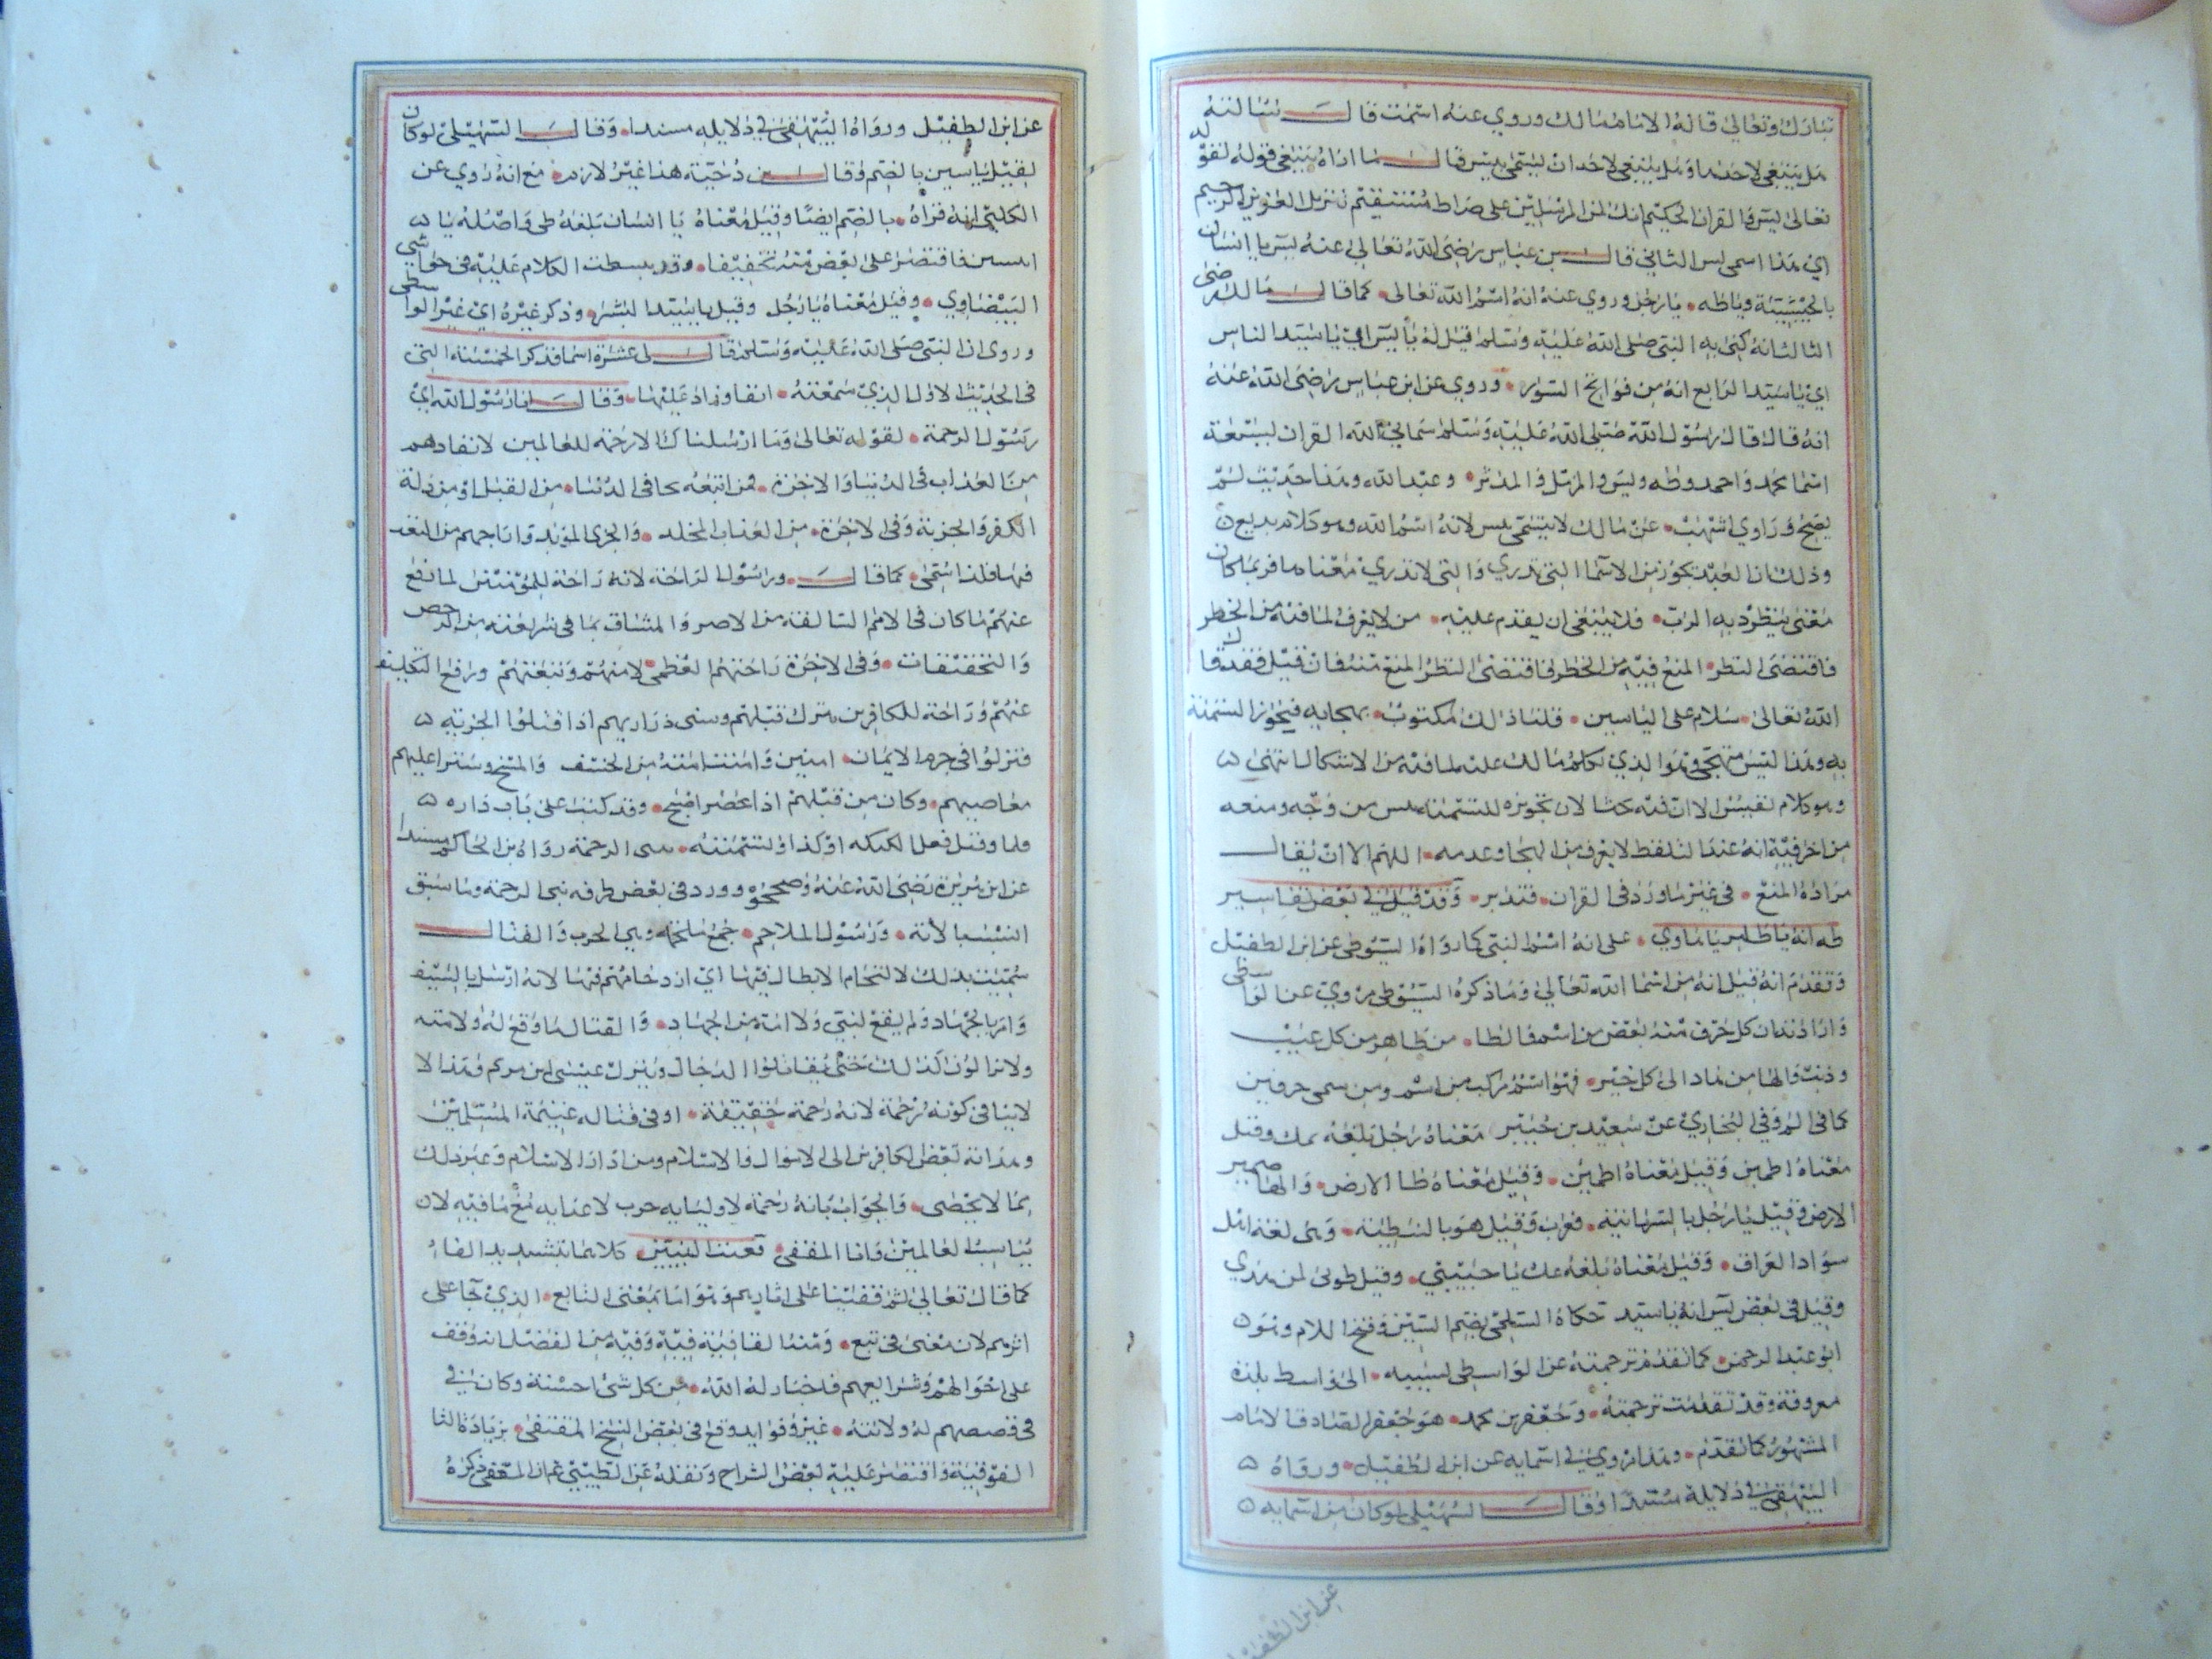 تبارك وتعالى قاله الامام مالك وروي عنه اسمت قال سالته
هل ينبغي لاحد ان يتسمى بيس قال ما اراه ينبغي قوله لقوله
تعالى يس والقران الحكيم انك لمن المرسلين على صراط مستقيم تنزيل العزيز الرحيم
اي هذا اسمي يس الثاني قال بن عباس رضي الله تعالى عنه يس يا انسان
بالحبشية وياطه يا رجل وروي عنه انه اسم الله تعالى كما قال مالك رضي
الثالث انه كني به النبي صلى الله عليه وسلم قيل له يا يس اي يا سيد الناس
اي يا سيد الرابع انه من فواتح السور وروي عن ابن عباس رضي الله عنه
انه قال قال رسول الله صلى الله عليه وسلم سماني الله القران بسبعة
اسما محمد واحمد وطه ويس والمزمل والمدثر وعبد الله وهذا حديث لم
يصح وراوي اشهب عن مالك لا يتسمى بيس لانه اسم الله وهو كلام بديع
وذلك ان العبد يجوز من الاسما التي تدري والتي لا تدري معناه ما فربما كان
معنى ينفرد به الرب فلا ينبغي ان يقدم عليه من لا يعرف لما فيه من الخطر
فاقتضى النظر المنع فيه من الخطر فاقتضى النظر المنع منه فان قيل فقد قال
الله تعالى سلام على الياسين قلنا ذلك مكتوب بهجايه فيجوز التسمية
به وهذا ليس متهجي وهو الذي تكلم مالك عليه لما فيه من الاشكال انتهى
وهو كلام نفيس الا ان فيه بحثا لان تجويزه للتسمية بيس من وجه ومنعه
من اخر فيه انه عند التلفظ لا يعرف من الهجا وعدمه اللهم الا ان يقال
مراده المنع في غير ما ورد في القران فتدبر وقد قيل في بعض تفاسير
طه انه يا طاهر يا هادي على انه اسم النبي كما رواه السيوطي عن ابي الطفيل
وتقدم انه قيل انه من اسما الله تعالى وما ذكره السيوطي مروي عن الواسطي
وارادته ان كل حرف منه بعض من اسم فالطا من طاهر من كل عيب
وذنب والها من هاد الى كل خير فهو اسم مركب من اسم ومن سمى حرفين
كما في الم وفي البخاري عن سعيد بن جبير معناه رجل بلغة عك وقيل
معناه اطمين وقيل معناه اطمين وقيل معناه طا الارض والها ضمير
الارض وقيل يا رجل بالسريانية فعرب وقيل هو بالنبطية وهي لغة اهل
سواد العراق وقيل معناه بلغة عك يا حبيبي وقيل طوبى لمن هدي
وقيل في بعض يس انه يا سيد حكاه السلمي بضم السين وفتح اللام وهو
ابو عبد الرحمن كما تقدم ترجمته عن الواسطي نسبه الى واسط بلدة
معروفة وقد تقدمت ترجمته وجعفر بن محمد هو جعفر الصادق الامام
المشهور كما تقدم وهذا روي في اسمايه عن ابي الطفيل ورواه
البيهقي في دلايله مسندا وقال السهيلي لو كان من اسمايه
عن ابن الطفيل
عن ابن الطفيل ورواه البيهقي في دلايله مسندا وقال السهيلي لو كان
لقيل ياسين بالضم وقال بن دحية هذا غير لازم مع انه روي عن
الكلبي انه قراه بالضم ايضا وقيل معناه يا انسان بلغة طي واصله يا
انيسين فاقتصر على بعض منه تخفيفا وقد بسطت الكلام عليه في حواشي
البيضاوي وقيل معناه يا رجل وقيل يا سيد البشر وذكر غيره اي غير الواسطي
وروى ان النبي صلى الله عليه وسلم قال لي عشرة اسما فذكر الخمسة التي
في الحديث الاول الذي سمعته انفا وزاد عليها وقال انا رسول الله اي
رسول الرحمة لقوله تعالى وما ارسلناك الا رحمة للعالمين لانقاذهم
من العذاب في الدنيا والاخرة فمن اتبعه نجا في الدنيا من القتل او من ذلة
الكفر والجزية وفي الاخرة من العذاب المخلد والخزي المؤبد
كما قال ورسول الراحة لانه راحة للمؤمنين لما رفع
عنهم ما كان في الامم السالفة من الاصر والمشاق بما في شريعته من الرخص
والتخفيفات وفي الاخرة راحتهم العظمى لامنهم وتبعتهم ورفع التكليف
عنهم وراحة للكافرين بترك قتلهم وسبي ذراريهم اذا قبلوا الجزية
فنزلوا في حرم الايمان امنين وامنت امته من الخسف والمسخ وستر عليهم
معاصيهم وكان من قبلهم اذا عصى اصبح وقد كتبت على باب داره
الرحمة رواه بن الحاكم مسندا
رضي الله عنه وصححوه وورد في بعض طرقه نبي الرحمة وما سبق
انسب بالأمة ورسول الملاحم جمع ملحمة وهي الحرب والقتال
سميت بذلك لالتحام الابطال فيها اي ازدحامهم فيها لانه ارسل بالسيف
وامر بالجهاد ولم يقع لنبي ولا امة من الجهاد والقتال ما وقع له ولامته
ولا يزالون كذلك حتى يقاتلوا الدجال وينزل عيسى ابن مريم وهذا لا
لا ينافي كونه رحمة لانه رحمة حقيقة او في قتاله غنيمة المسلمين
وهداية بعض الكافرين الى الاسلام وغير ذلك
مما لا يحصى والجواب بانه رحمة لاوليايه حرب لاعدايه مع ما فيه لان
يناسب العالمين وانا المقفى قفيت النبيين كلاهما بتشديد الفاء
كما قال تعالى ثم قفينا على اثارهم وهو اما بمعنى التابع الذي جا على
اثرهم لان معنى قفى تبع ومنه القافية وفيه من الفضل انه وقف
على احوالهم وشرايعهم فاختار له الله من كل شي احسنه وكان في
في قصصهم له ولامته عبر وفوايد وقع في بعض النسخ المقتفي بزيادة التا
الفوقية واقتصر عليه بعض الشراح ونقله عن الطيبي ذكره